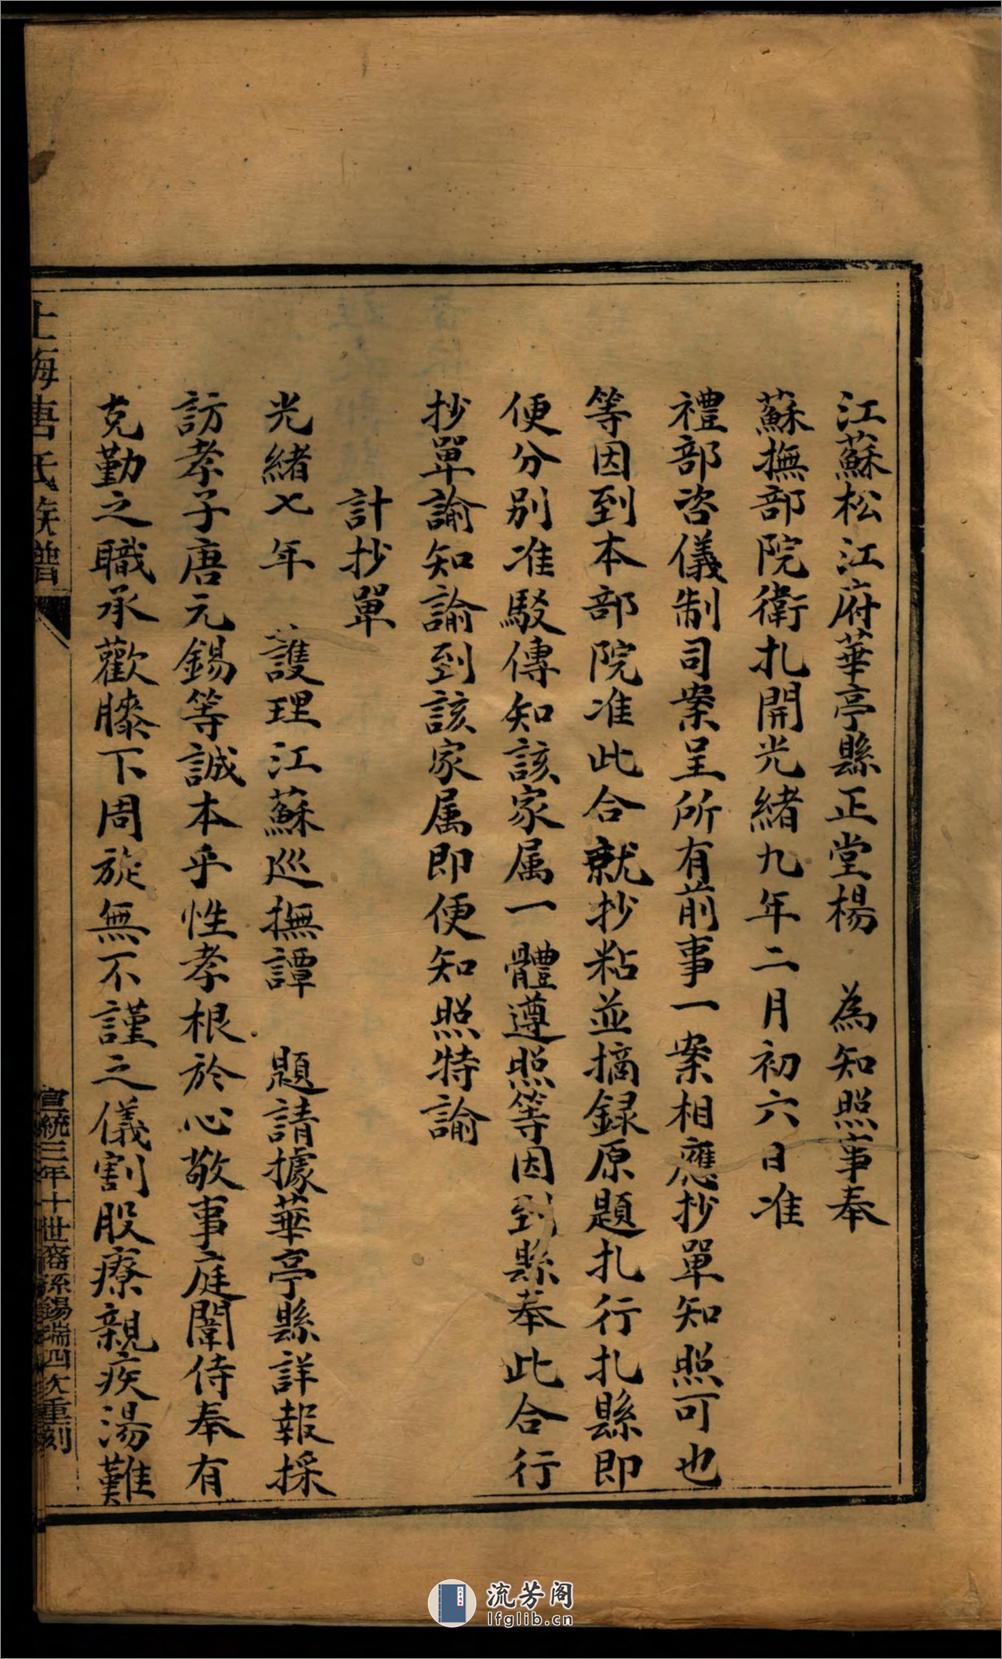 江蘇松江府華亭縣正堂楊　為知照事奉
蘇撫部院衛扎開光緒九年二月初六日准
禮部咨儀制司案呈所有前事一案相應抄單知照可也
等因到本部院准此合就抄粘並摘録原題扎行扎縣即
便分别准駁傳知該家属一體遵照等因到縣奉此合行
抄單諭知諭到該家属即便知照特諭
計抄單
光緒七年　護理江蘇巡撫譚　題請據華亭縣詳報採
訪孝子唐元錫等誠本乎性孝根於心敬事庭闈侍奉有
克勤之職承歡膝下周旋無不謹之儀割股療親疾湯難
上海唐氏族譜
宣統三年十世裔孫錫瑞四次重刻
流芳阁
lfglib.cn